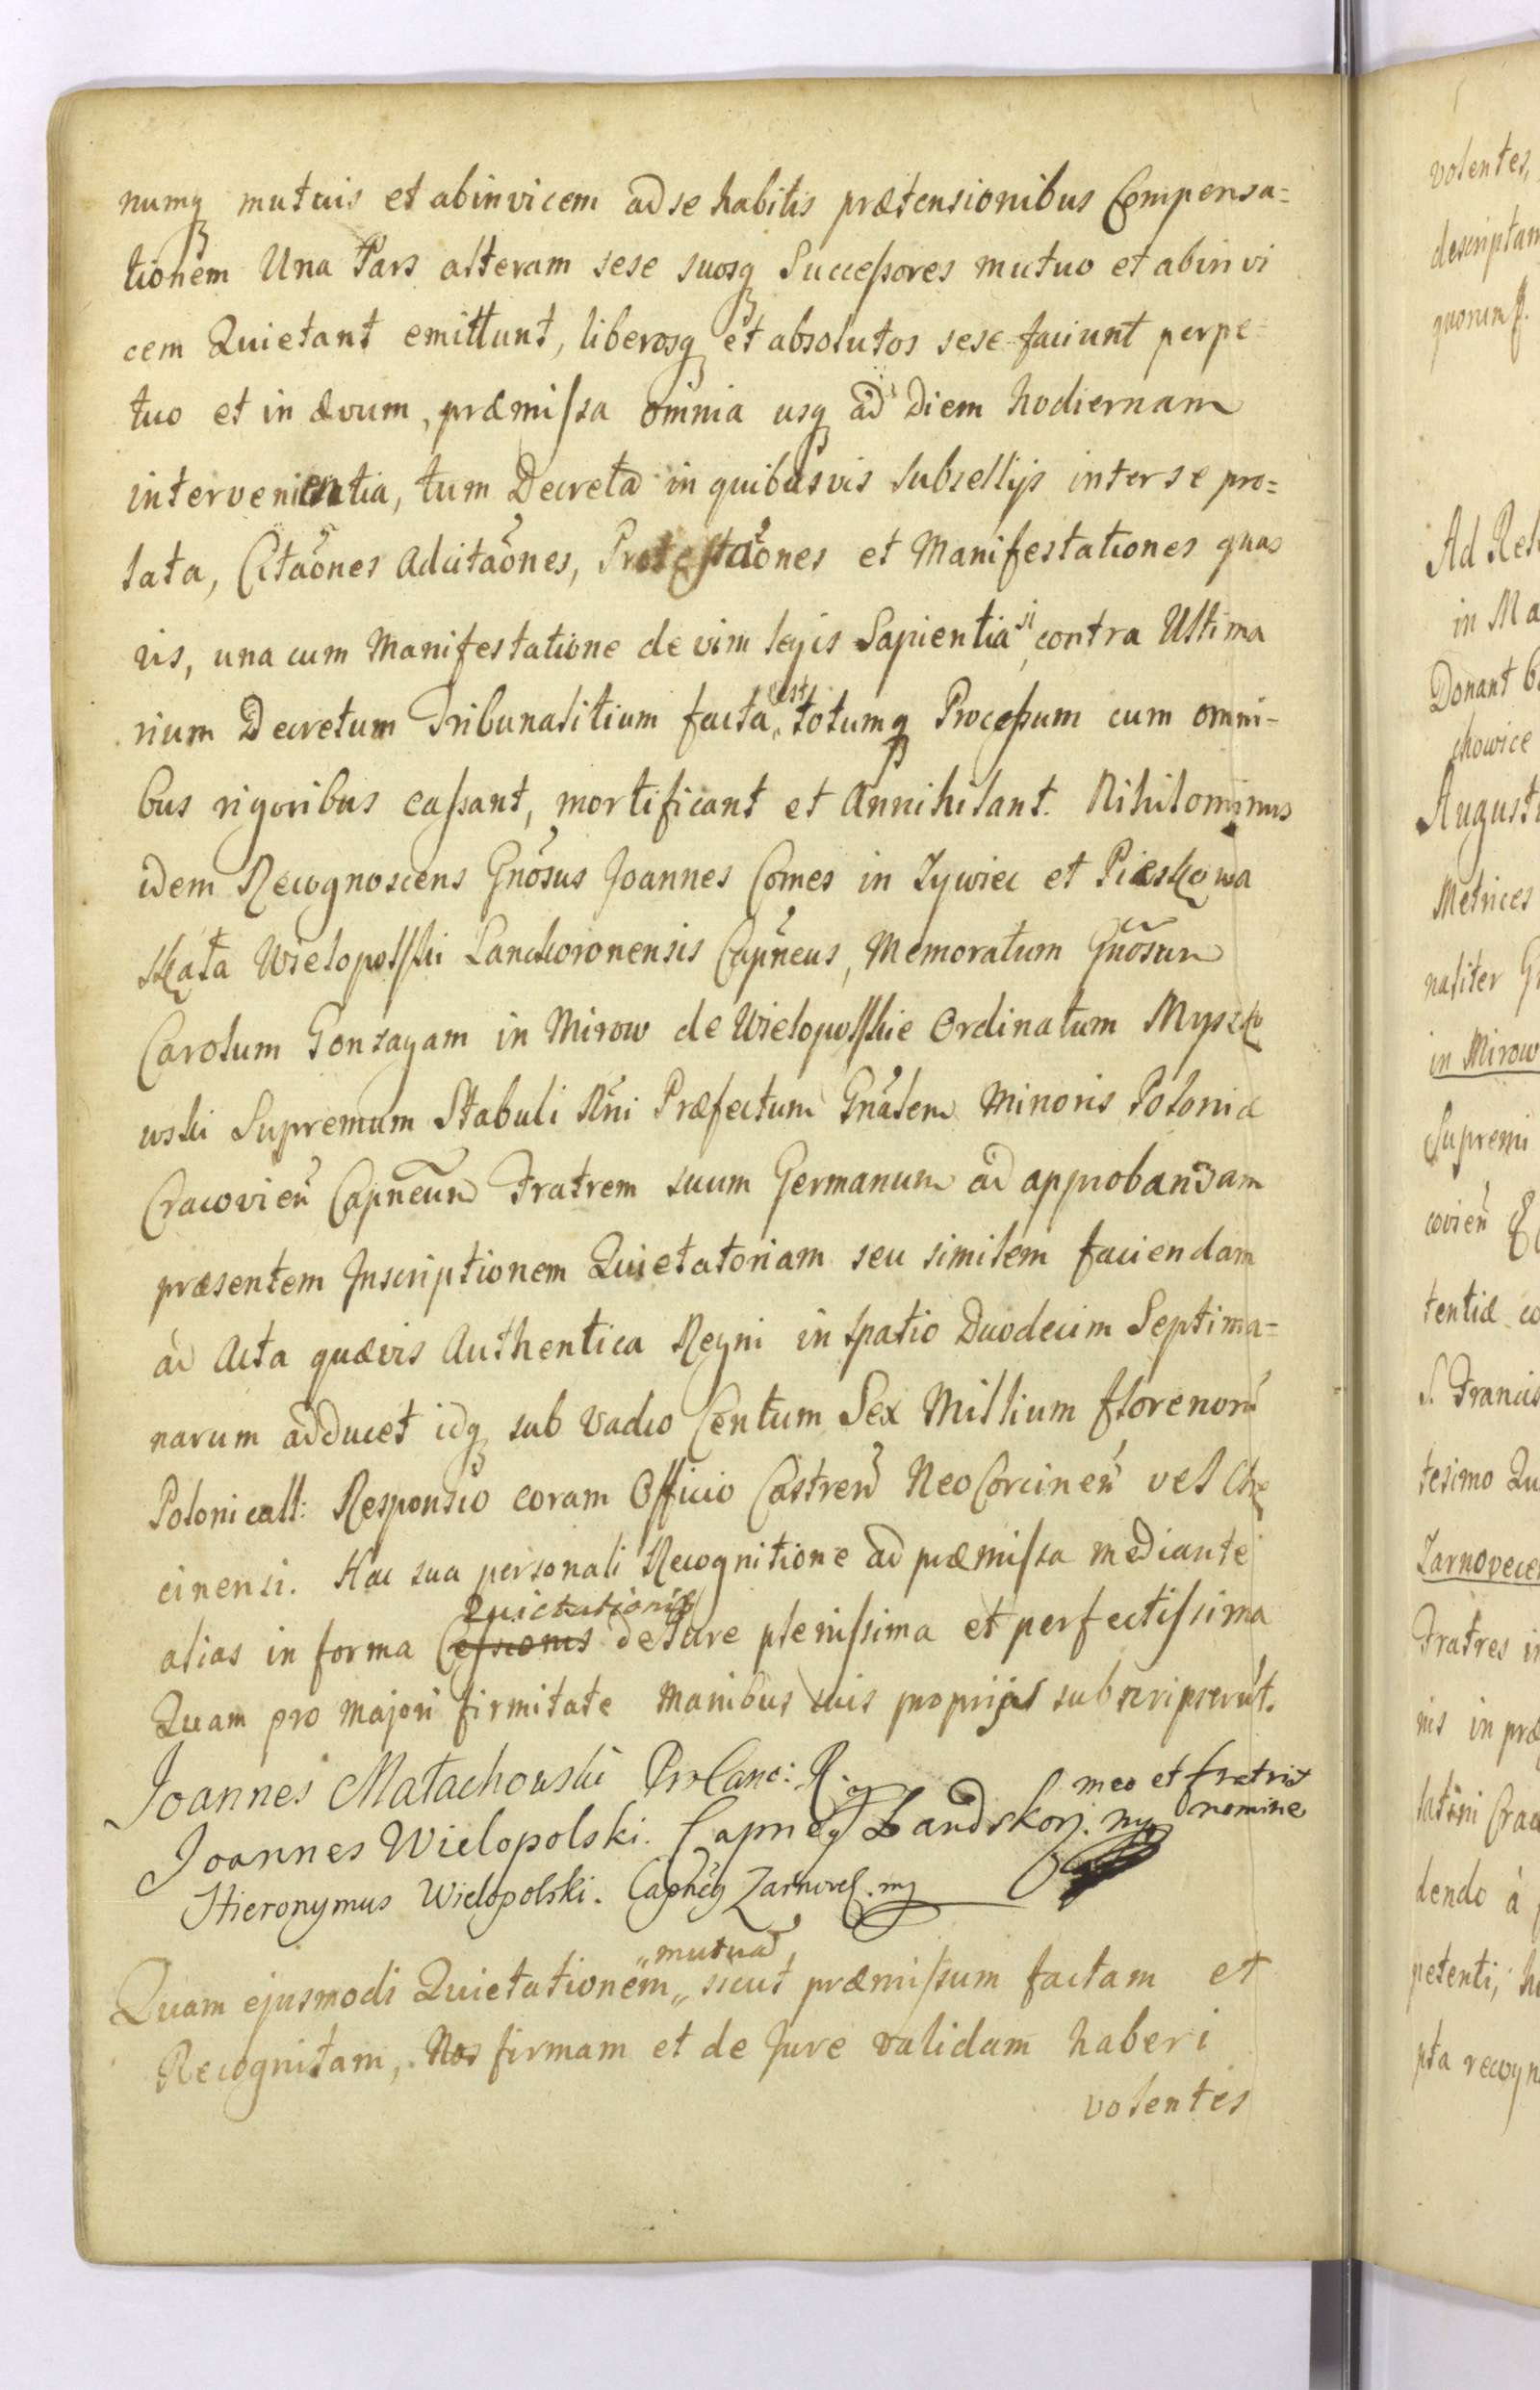 numq mutuis et abinvicem ad se habitis prætensionibus Compensa=
tionem Una Pars alteram sese suosq Successores mutuo et abinvi
cem Quietant emittunt, liberosq et absolutos sese faciunt perpe=
tuo et in ævum, præmissa omnia usq ad Diem hodiernam
intervenientia, tum Decreta in quibusvis Subsellijs inter se pro=
lata, Citaões Adcitaões, Protestaões et Manifestationes quas
vis, una cum Manifestatione de vim legis Sapientia, contra Ultima
rium Decretum Tribunalitium facta, totumq Processum cum omni-
bus rigoribus cassant, mortificant et Annihilant. Nihilominus
idem Recognoscens Gnōsus Joannes Comes in Zywiec et Pieskowa
Skała Wielopolski Lanckoronensis Capneus, Memoratum Gnōsum
Carolum Gonzagam in Mirow de Wielopolskie Ordinatum Myszko
wski Supremum Stabuli Rni Præfectum Gnalem Minoris Poloniæ
Cracovien Capneum Fratrem suum Germanum ad approbandam
præsentem Inscriptionem Quietatoriam seu similem faciendam
ad Acta quævis Authentica Regni in spatio Duodecim Septima=
narum adducet idq sub Vadio Centum Sex Millium florenorũ
Polonicall: Responsio coram Officio Castren NeoCorcinen vel Chę
cinensi. Hac sua personali Recognitione ad præmissa mediante
Quietationis
alias in forma Cessionis de Jure plenissima et perfectissima
Quam pro majori firmitate Manibus suis proprijs subscripserũt.
Joannes Małachowski ProCanc: R.
meo et fratris
nomine
Joannes Wielopolski. Capneq Landskor. mp
Hieronymus Wielopolski. Capneq Zarnovec. mp
mutuam
Quam ejusmodi Quietationem sicut præmissum factam et
Recognitam, Nos firmam et de Jure validam haberi
volentes
volentes,
descriptam
quorum
in Ma
Donant
chowice
August
Metrices
naliter
in Mirow
Supremi
covien
tentiæ
S. Francis
tesimo
Fratres
nis in præ
dendo à
petenti,
pta recogn